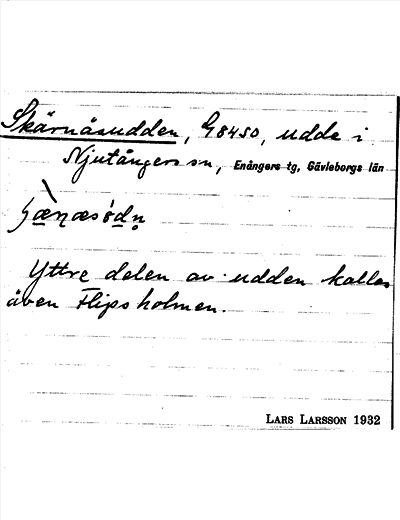 Skärnäsudden, G8450, udde i
Njutångers sn, Enångers tg, Gävleborgs län
Yttre delen av udden kallas
även Flipsholmen.
LARS LARSSON 1932